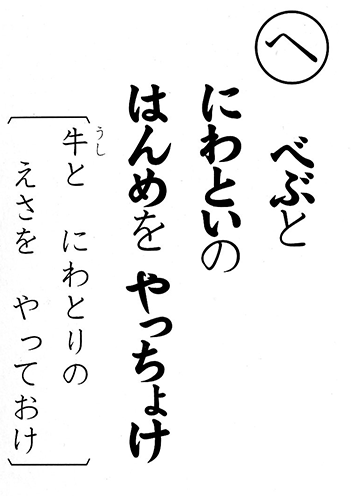 へ
べぶと
にわといの
はんめを やっちょけ
牛と にわとりの
うし
えさを やっておけ